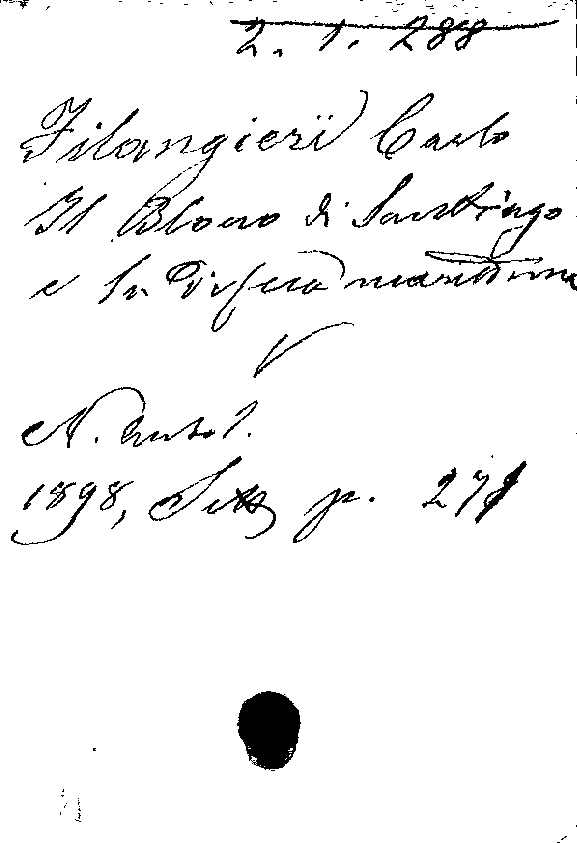 2. 1. 288
Filangieri Carlo
Il Blocco di Santiago
e la Difesa marittima
V
N. Antol.
1898, Sett p. 271